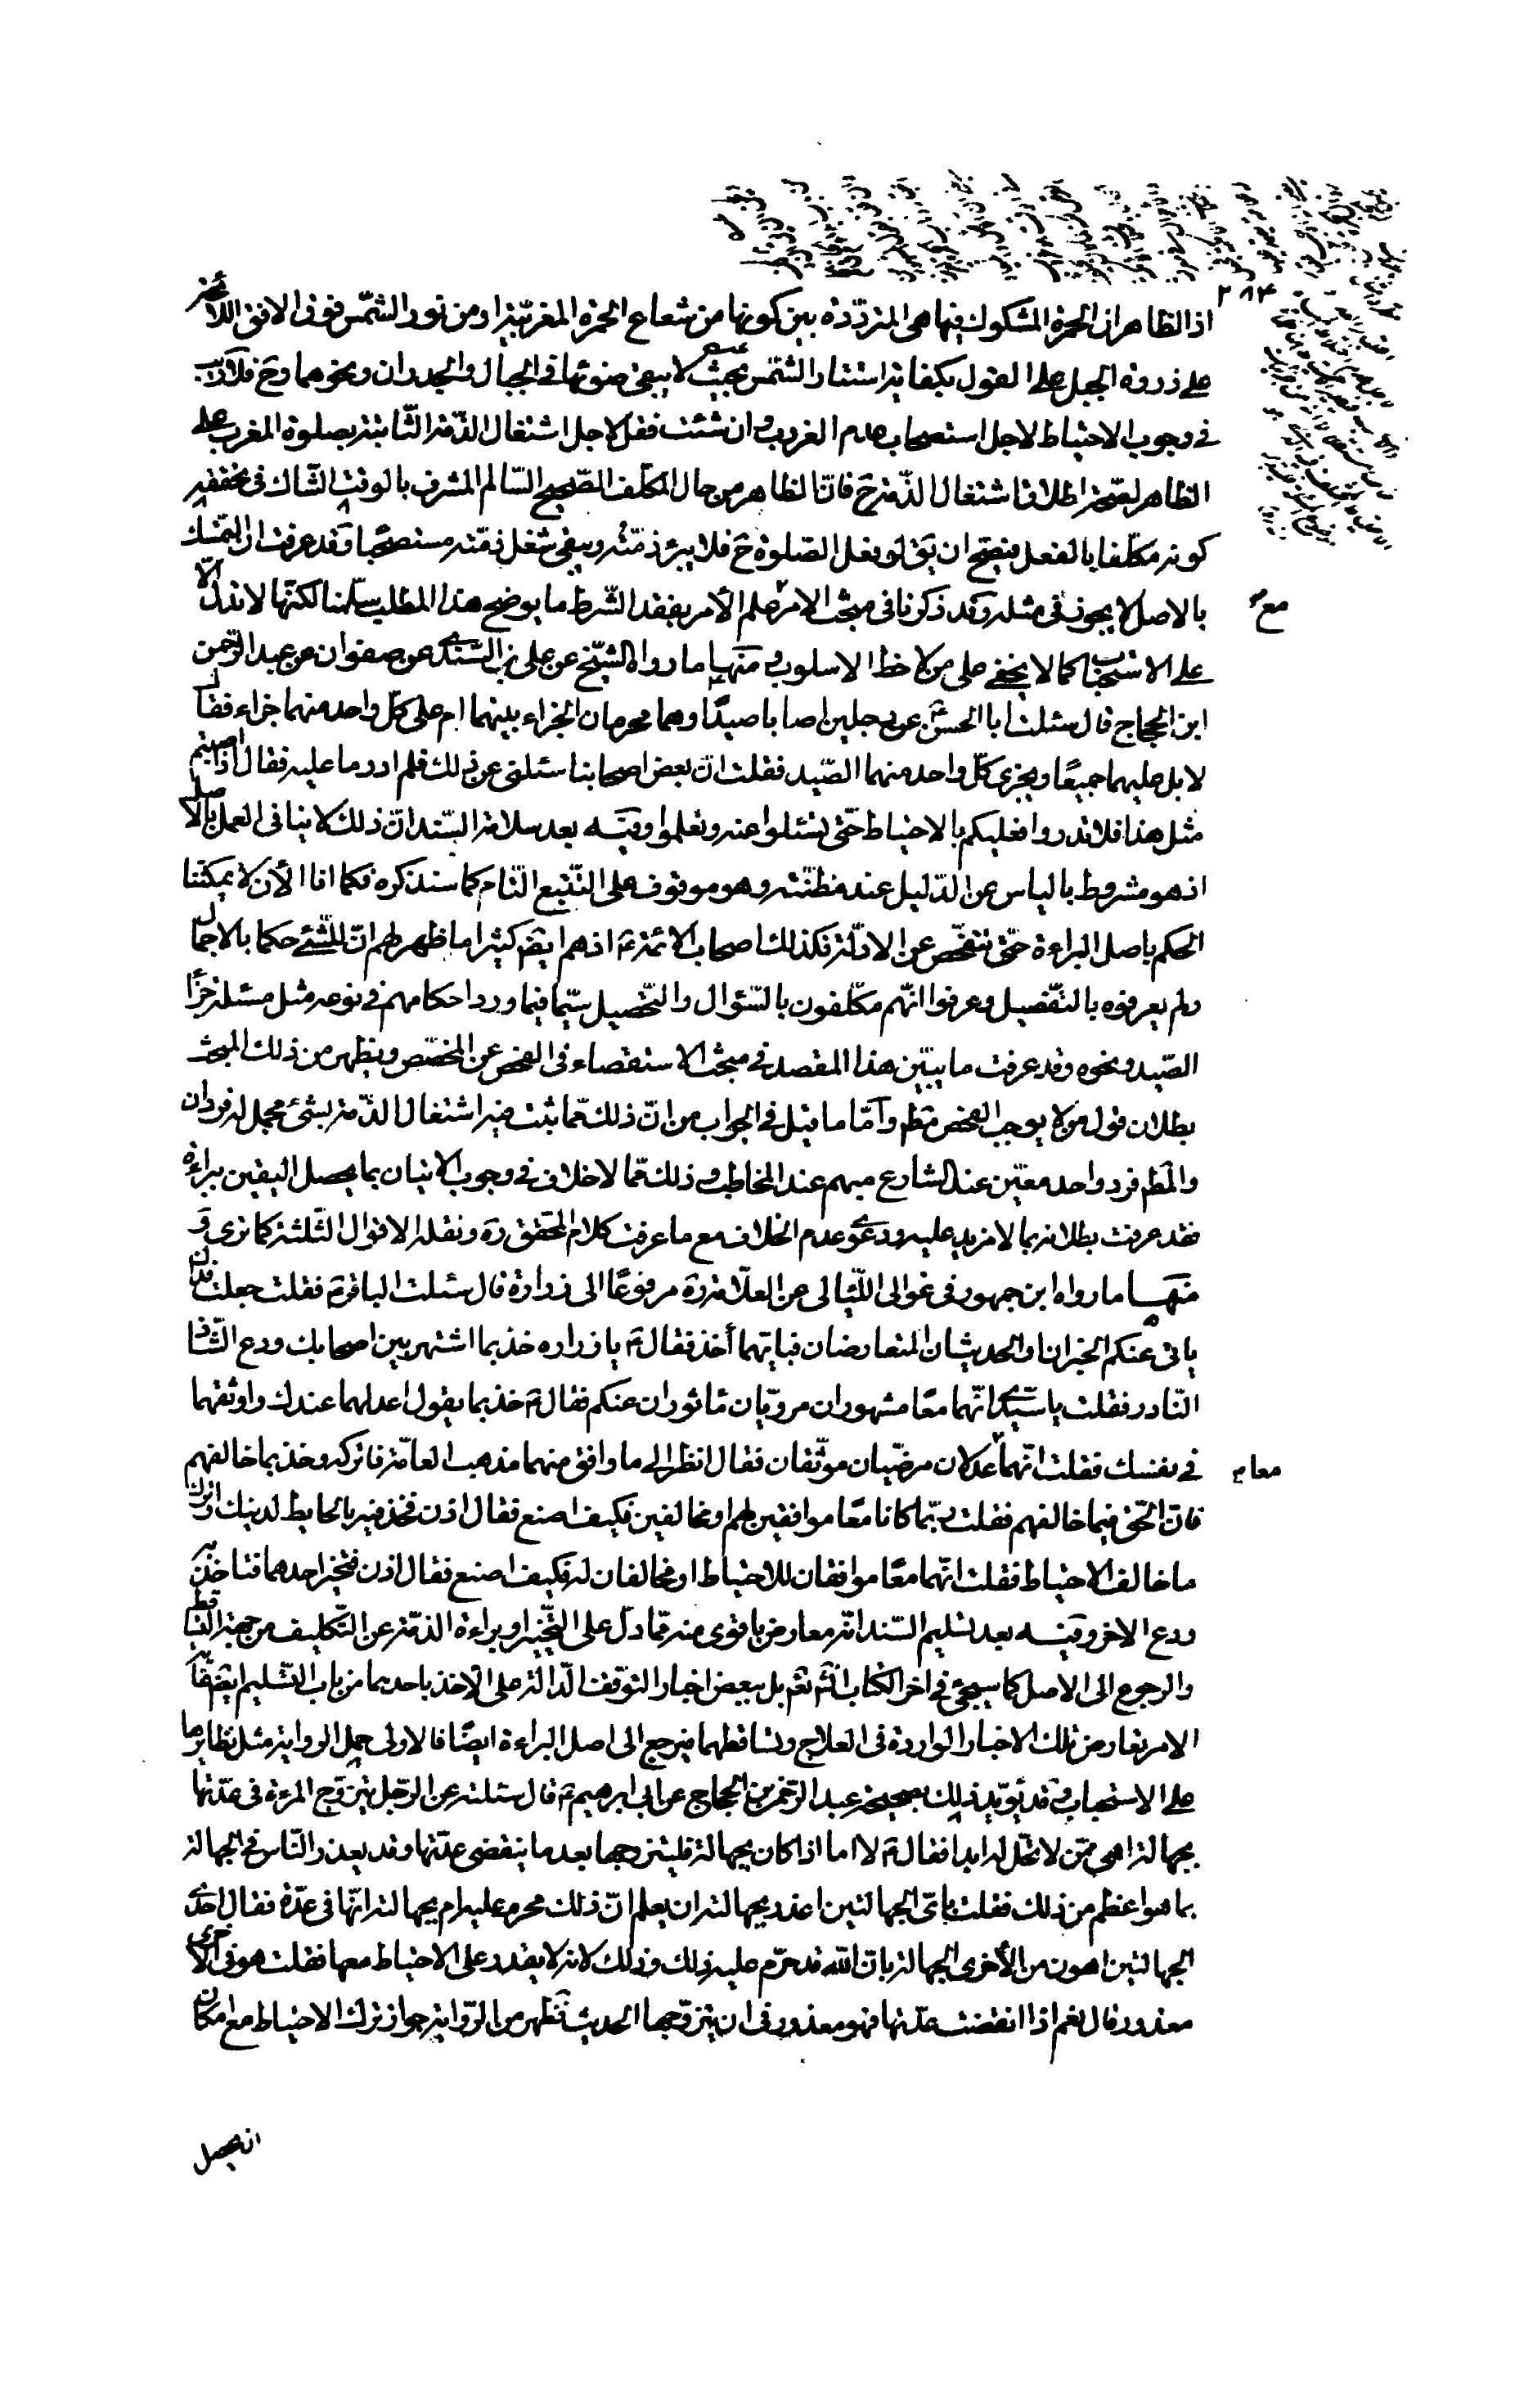 ٢٨۴
اذ الظاهر ان الحمرة المشكوك فيها هى المتردّدة بين كونها من شعاع الحمرة المغربيّة او من نور الشّمس فوق الافق اللائحة
على ذروة الجبل على القول بكفاية استتار الشّمس بحيث لا يبقى ضوئها فى الجبال والجدران ونحوهما وح فلا ريب
فى وجوب الاحتياط لاجل استصحاب عدم الغروب وان شئت فقل لاجل اشتغال الذّمة الثّابتة بصلوة المغرب على
الظاهر لصحّة اطلاق اشتغال الذّمة ح فانّ الظاهر من حال المكلّف الصّحيح السّالم المشرف بالوقت الشّاك فى تحقّقه
كونه مكلّفا بالفعل فيصحّ ان يقَ لو يفعل الصّلوة ح فلا يبرئ ذمّته ويبقى شغل ذمّته مستصحبًا وقد عرفت ان التمسّك
بالاصل لا يجوز فى مثله وقد ذكرنا فى مبحث الامر مع علم الأمر بفقد الشّرط ما يوضح هذا المطلب سلّمنا لكنّها لا تدلّ الّا
مع
على الاستحباب كما لا يخفى على من لاحظ الاسلوب و منها ما رواه الشيّخ عن على بن السّندى عن صفوان عن عبد الرّحمن
ابن الحجاج قال سئلت ابا الحسن عَ عن رجلين اصابا صيدًا وهما محرمان الجزاء بينهما ام على كلّ واحد منهما جزاء فقال
لا بل عليهما جميعًا ويجزى كلّ واحد منهما الصّيد فقلت انّ بعض اصحابنا سئلنى عن ذلك فلم ادر ما عليه فقال اذا اصبتم
مثل هذا فلا تدروا فعليكم بالاحتياط حتّى تسئلوا عنه وتعلموا وفيه بعد سلامة السّند انّ ذلك لا ينافى العمل بالاصل
اذ هو مشروط بالياس عن الدّليل عند مظنّته وهو موقوف على التّتبع التّام كما سنذكره فكما انا الأن لا يمكننا
الحكم باصل البراءة حتّى نتفحّص عن الادلّة فكذلك اصحاب الائمّة عَ اذ هم ايضَ كثيرا ما ظهر لهم انّ للشّىء حكما بالاجمال
ولم يعرفوه بالتفّصيل وعرفوا انّهم مكلّفون بالسّؤال والتّحصيل سيّما فيما ورد احكامهم فى نوعه مثل مسئلة جزاء
الصّيد ونحوه وقد عرفت ما يبيّن هذا المقصد فى مبحث الاستقصاء فى الفحص عن المخصّص ويظهر من ذلك المبحث
بطلان قول من لا يوجب الفحص مطَ وامّا ما قيل فى الجواب من انّ ذلك ممّا ثبت فيه اشتغال الذّمة بشىء مجمل له فردان
والمطَ فرد واحد معيّن عند الشارع مبهم عند المخاطب وذلك ممّا لا خلاف فى وجوب الاتيان بما يحصل اليقين ببراءة
فقد عرفت بطلانه بما لا مزيد عليه ودعوى عدم الخلاف مع ما عرفت كلام المحقّق رَه ونقله الاقوال الثّلثة كما ترى و
منها ما رواه ابن جمهور فى غوالى اللّئالى عن العلّامة رَه مرفوعًا الى زرارة قال سئلت الباقر عَ فقلت جعلت فداك
ياتى عنكم الخبران والحديثان المتعارضان فبايّهما أخذ فقال عَ يا زراره خذ بما اشتهر بين اصحابك ودع الشّاذ
النّادر فقلت يا سيّدى انّهما معًا مشهوران مرويّان ماثوران عنكم فقال عَ خذ بما يقول اعدلهما عندك واوثقهما
فى نفسك فقلت انّهما معا عدلان مرضيّان موثّقان فقال انظر الى ما وافق منهما مذهب العامّة فاتركه وخذ بما خالفهم
معا
فانّ الحّق فيما خالفهم فقلت ربّما كانا معًا موافقين لهم او مخالفين فكيف اصنع فقال اذن فخذ فيه بالحايط لدينك واترك
ما خالف الاحتياط فقلت انّهما معًا موافقان للاحتياط او مخالفان له فكيف اصنع فقال اذن فتخيّر احدهما فتاخذ به
ودع الاخر وفيه بعد تسليم السّند انّه معارض باقوى منه ممّا دلّ على التّخيير او براءة الذمّة عن التّكليف من جهة التساقط
والرجوع الى الاصل كما سيجئ فى اخر الكتاب انشَ تعَ بل ببعض اخبار التوّقف الدّالة على الاخذ باحدهما من باب التّسليم ايضَ
الامر تعارض تلك الاخبار الواردة فى العلاج وتساقطهما فيرجع الى اصل البراءة ايضًا فالاولى حمل الرواية مثل نظايرها
على الاستحباب وقد يؤيّد ذلك بصحيحة عبد الرّحمن بن الحجاج عن ابى ابرهيم عَ قال سئلته عن الرّجل يتزوّج المرءة فى عدّتها
بجهالة اهى ممّن لا تحّل له ابدا فقال عَ لا اما اذا كان بجهالة فليتزوجها بعد ما ينقضى عدّتها وقد يعذر النّاس فى الجهالة
بما هو اعظم من ذلك فقلت بايّ الجهالتين اعذر بجهالته ان يعلم انّ ذلك محرم عليه ام بجهالته انّها فى عدّة فقال احدى
الجهالتين اهون من الأخرى الجهالة بانّ اللّه قد حرّم عليه ذلك وذلك لانه لا يقدر على الاحتياط معها فقلت هو فى الاخرى
معذور قال نعم اذا انقضت عدّتها فهو معذور فى ان يتزوّجها الحديث فظهر من الرّواية جواز ترك الاحتياط مع امكان
ان يحصل